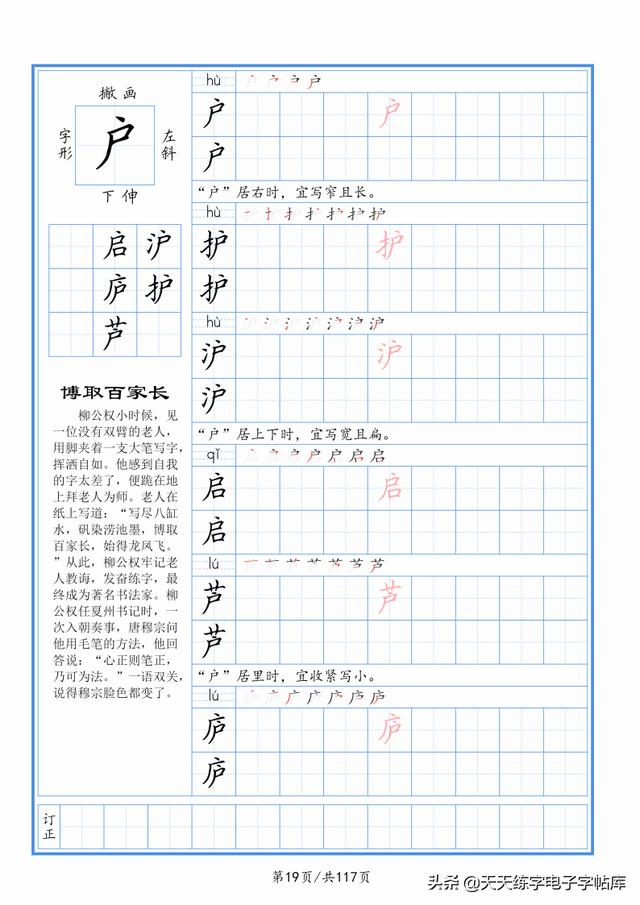 撇画
字形
户
左斜
下伸
启沪
庐护
芦
博取百家长
柳公权小时候，见
一位没有双臂的老人，
用脚夹着一支大笔写字，
挥洒自如。他感到自我
的字太差了，便跪在地
上拜老人为师。老人在
纸上写道：“写尽八缸
水，矾染涝池墨，博取
百家长，始得龙凤飞。
”从此，柳公权牢记老
人教诲，发奋练字，最
终成为著名书法家。柳
公权任夏州书记时，一
次入朝奏事，唐穆宗问
他用毛笔的方法，他回
答说：“心正则笔正，
乃可为法。”一语双关，
说得穆宗脸色都变了。
hù
户 户
户
“户”居右时，宜写窄且长。
hù
护 护
护
hù
沪 沪
沪
“户”居上下时，宜写宽且扁。
qǐ
启 启
启
lú
芦 芦
芦
“户”居里时，宜收紧写小。
lú
庐 庐
庐
订正
第19页/共117页
头条 @天天练字电子字帖库